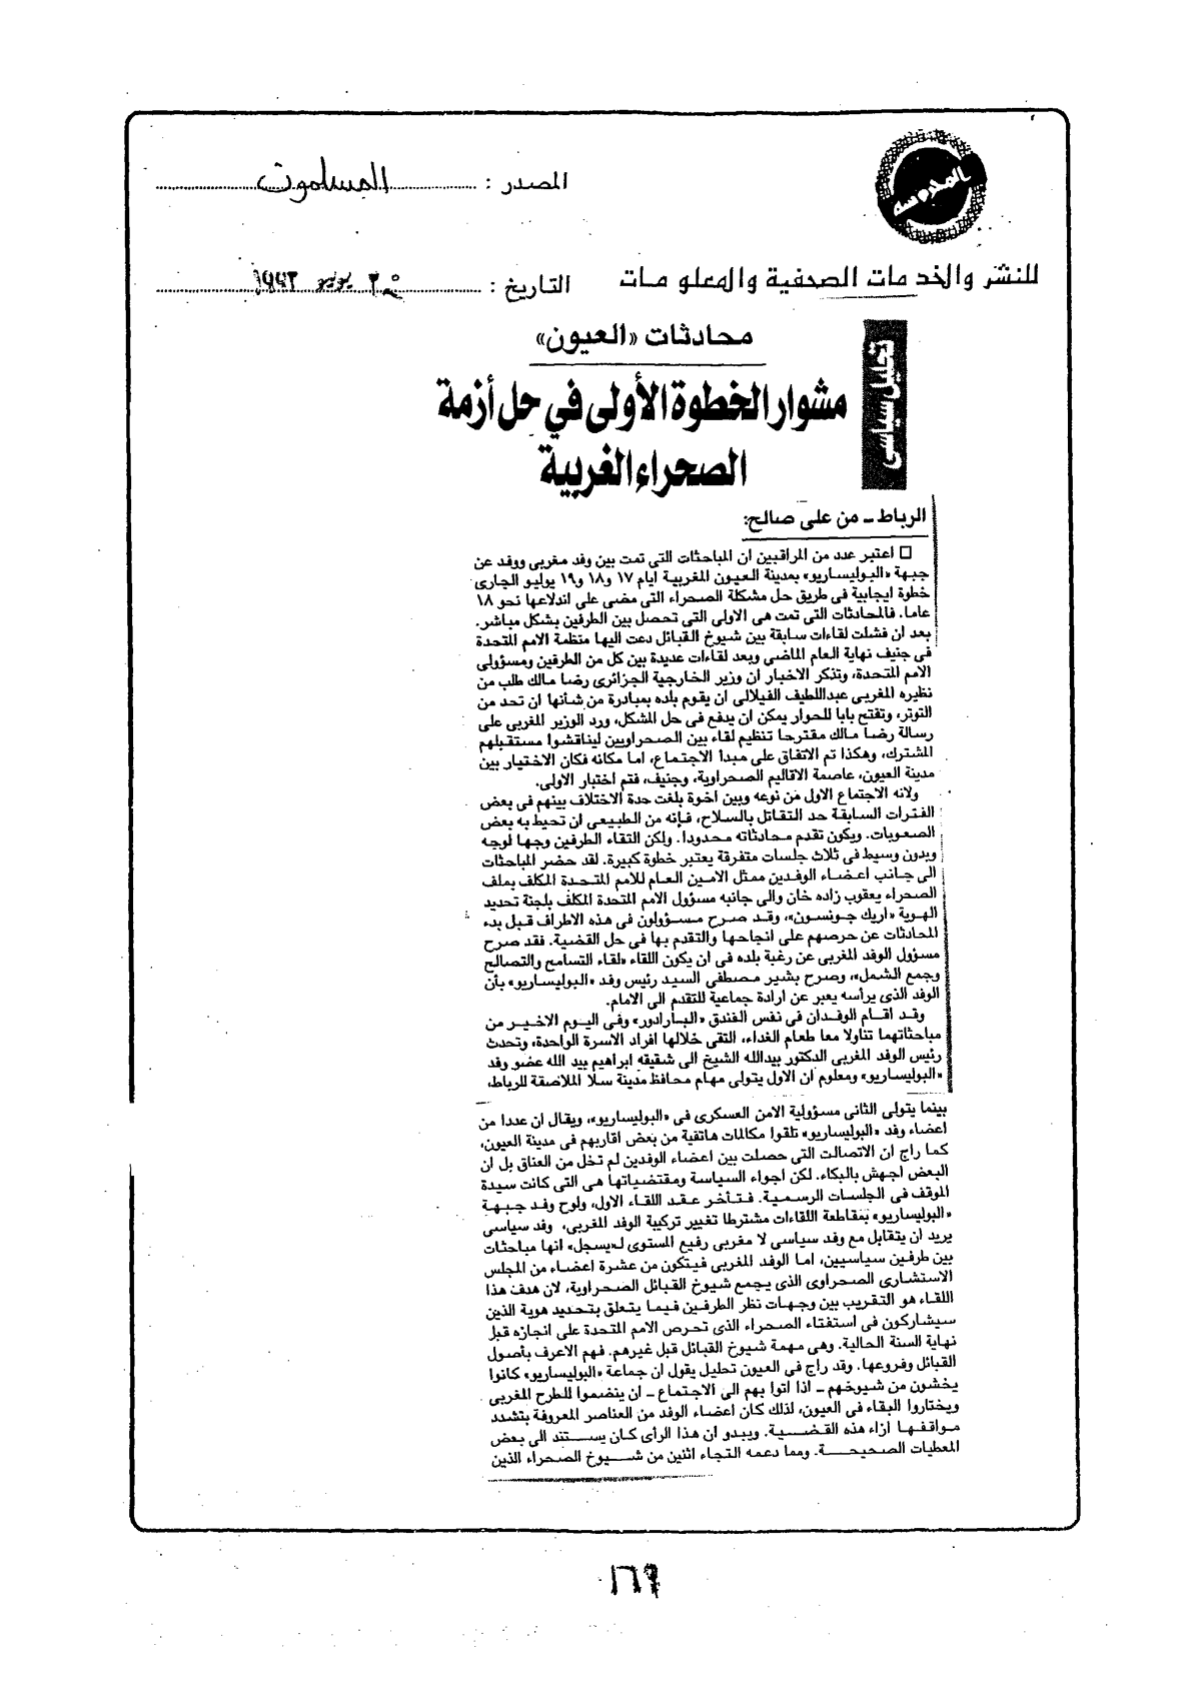 المدرسة
المصدر : المسلمون
للنشر والخدمات الصحفية والمعلومات
التاريخ : ٣٠ يوليو ١٩٩٣
تحليل سياسى
محادثات «العيون»
مشوار الخطوة الأولى في حل أزمة
الصحراء الغربية
الرباط ـ من على صالح:
□ اعتبر عدد من المراقبين ان المباحثات التى تمت بين وفد مغربى ووفد عن
جبهة «البوليساريو» بمدينة العيون المغربية ايام ١٧ و١٨ و١٩ يوليو الجارى
خطوة ايجابية فى طريق حل مشكلة الصحراء التى مضى على اندلاعها نحو ١٨
عاما. فالمحادثات التى تمت هى الاولى التى تحصل بين الطرفين بشكل مباشر.
بعد ان فشلت لقاءات سابقة بين شيوخ القبائل دعت اليها منظمة الامم المتحدة
فى جنيف نهاية العام الماضى وبعد لقاءات عديدة بين كل من الطرفين ومسؤولى
الامم المتحدة، وتذكر الاخبار ان وزير الخارجية الجزائرى رضا مالك طلب من
نظيره المغربى عبداللطيف الفيلالى ان يقوم بلده بمبادرة من شأنها ان تحد من
التوتر، وتفتح بابا للحوار يمكن ان يدفع فى حل المشكل، ورد الوزير المغربى على
رسالة رضا مالك مقترحا تنظيم لقاء بين الصحراويين ليناقشوا مستقبلهم
المشترك، وهكذا تم الاتفاق على مبدأ الاجتماع، اما مكانه فكان الاختيار بين
مدينة العيون، عاصمة الاقاليم الصحراوية، وجنيف، فتم اختيار الاولى.
ولانه الاجتماع الاول من نوعه وبين اخوة بلغت حدة الاختلاف بينهم فى بعض
الفترات السابقة حد التقاتل بالسلاح، فإنه من الطبيعى ان تحيط به بعض
الصعوبات. ويكون تقدم محادثاته محدودا. ولكن التقاء الطرفين وجها لوجه
وبدون وسيط فى ثلاث جلسات متفرقة يعتبر خطوة كبيرة. لقد حضر المباحثات
الى جانب اعضاء الوفدين ممثل الامين العام للأمم المتحدة المكلف بملف
الصحراء يعقوب زاده خان والى جانبه مسؤول الامم المتحدة المكلف بلجنة تحديد
الهوية «اريك جونسون»، وقد صرح مسؤولون فى هذه الاطراف قبل بدء
المحادثات عن حرصهم على انجاحها والتقدم بها فى حل القضية. فقد صرح
مسؤول الوفد المغربى عن رغبة بلده فى ان يكون اللقاء «لقاء التسامح والتصالح
وجمع الشمل»، وصرح بشير مصطفى السيد رئيس وفد «البوليساريو» بأن
الوفد الذى يرأسه يعبر عن ارادة جماعية للتقدم الى الامام.
وقد اقام الوفدان فى نفس الفندق «البارادور» وفى اليوم الاخير من
مباحثاتهما تناولا معا طعام الغداء، التقى خلالها افراد الاسرة الواحدة، وتحدث
رئيس الوفد المغربى الدكتور بيدالله الشيخ الى شقيقه ابراهيم بيد الله عضو وفد
«البوليساريو» ومعلوم ان الاول يتولى مهام محافظ مدينة سلا الملاصقة للرباط،
بينما يتولى الثانى مسؤولية الامن العسكرى فى «البوليساريو»، ويقال ان عددا من
اعضاء وفد «البوليساريو» تلقوا مكالمات هاتفية من بعض اقاربهم فى مدينة العيون،
كما راج ان الاتصالات التى حصلت بين اعضاء الوفدين لم تخل من العناق بل ان
البعض اجهش بالبكاء. لكن اجواء السياسة ومقتضياتها هى التى كانت سيدة
الموقف فى الجلسات الرسمية. فتأخر عقد اللقاء الاول، ولوح وفد جبهة
«البوليساريو» بمقاطعة اللقاءات مشترطا تغيير تركيبة الوفد المغربى، وفد سياسى
يريد ان يتقابل مع وفد سياسى لا مغربى رفيع المستوى لـ«يسجل» انها مباحثات
بين طرفين سياسيين، اما الوفد المغربى فيتكون من عشرة اعضاء من المجلس
الاستشارى الصحراوى الذى يجمع شيوخ القبائل الصحراوية، لان هدف هذا
اللقاء هو التقريب بين وجهات نظر الطرفين فيما يتعلق بتحديد هوية الذين
سيشاركون فى استفتاء الصحراء الذى تحرص الامم المتحدة على انجازه قبل
نهاية السنة الحالية. وهى مهمة شيوخ القبائل قبل غيرهم. فهم الاعرف بأصول
القبائل وفروعها. وقد راج فى العيون تحليل يقول ان جماعة «البوليساريو» كانوا
يخشون من شيوخهم ـ اذا اتوا بهم الى الاجتماع ـ ان ينضموا للطرح المغربى
ويختاروا البقاء فى العيون، لذلك كان اعضاء الوفد من العناصر المعروفة بتشدد
مواقفها ازاء هذه القضية. ويبدو ان هذا الرأى كان يستند الى بعض
المعطيات الصحيحة. ومما دعمه التجاء اثنين من شيوخ الصحراء الذين
١٦٩